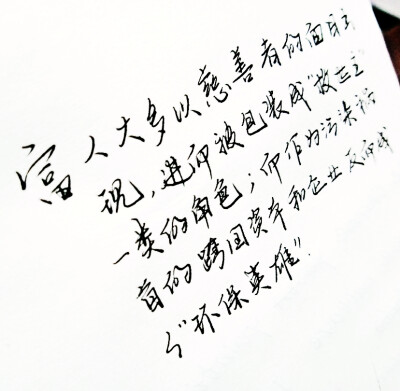 富人大多以慈善者的面目出
现，进而被包装成“救世主”
一类的角色；而作为污染源
首的跨国资本和企业反而成
了“环保英雄”.